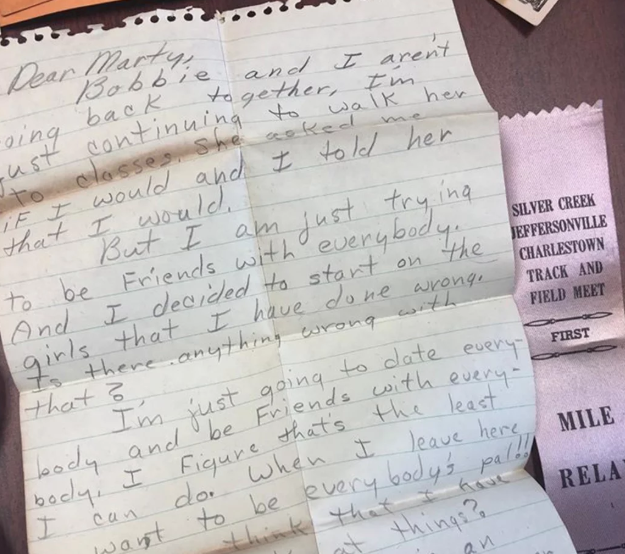 Dear Marty,
Bobbie and I aren't
oing back together, I'm
just continuing to walk her
to classes. She asked me
if I would and I told her
that I would.
But I am just trying
to be Friends with everybody.
And I decided to start on the
girls that I have done wrong.
Is there anything wrong with
that?
I'm just going to date every-
body and be Friends with every-
body. I Figure that's the least
I can do. When I leave here
want to be everybody's pal!!
think that I have
at things?
an
SILVER CREEK
JEFFERSONVILLE
CHARLESTOWN
TRACK AND
FIELD MEET
FIRST
MILE
RELA